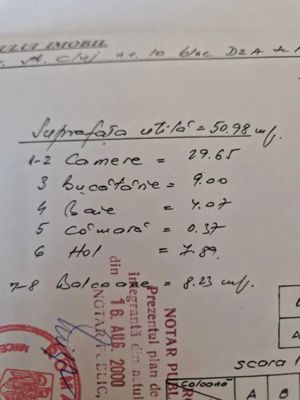 ULUI IMOBIL
Cluj nr. 10 bloc D2A
Suprafața utilă = 50.98 mp.
1-2 Camere = 29.65
3 Bucătărie = 9.00
4 Baie = 4.07
5 Cămară = 0.37
6 Hol = 7.89
7-8 Balcoane = 8.23 mp.
NOTAR PUBL
Prezentul plan de
integrantă din actul
din 16. AUG. 2000
NOTAR PUBLIC,
MIRCE
scara 1
Coloana
A B
A